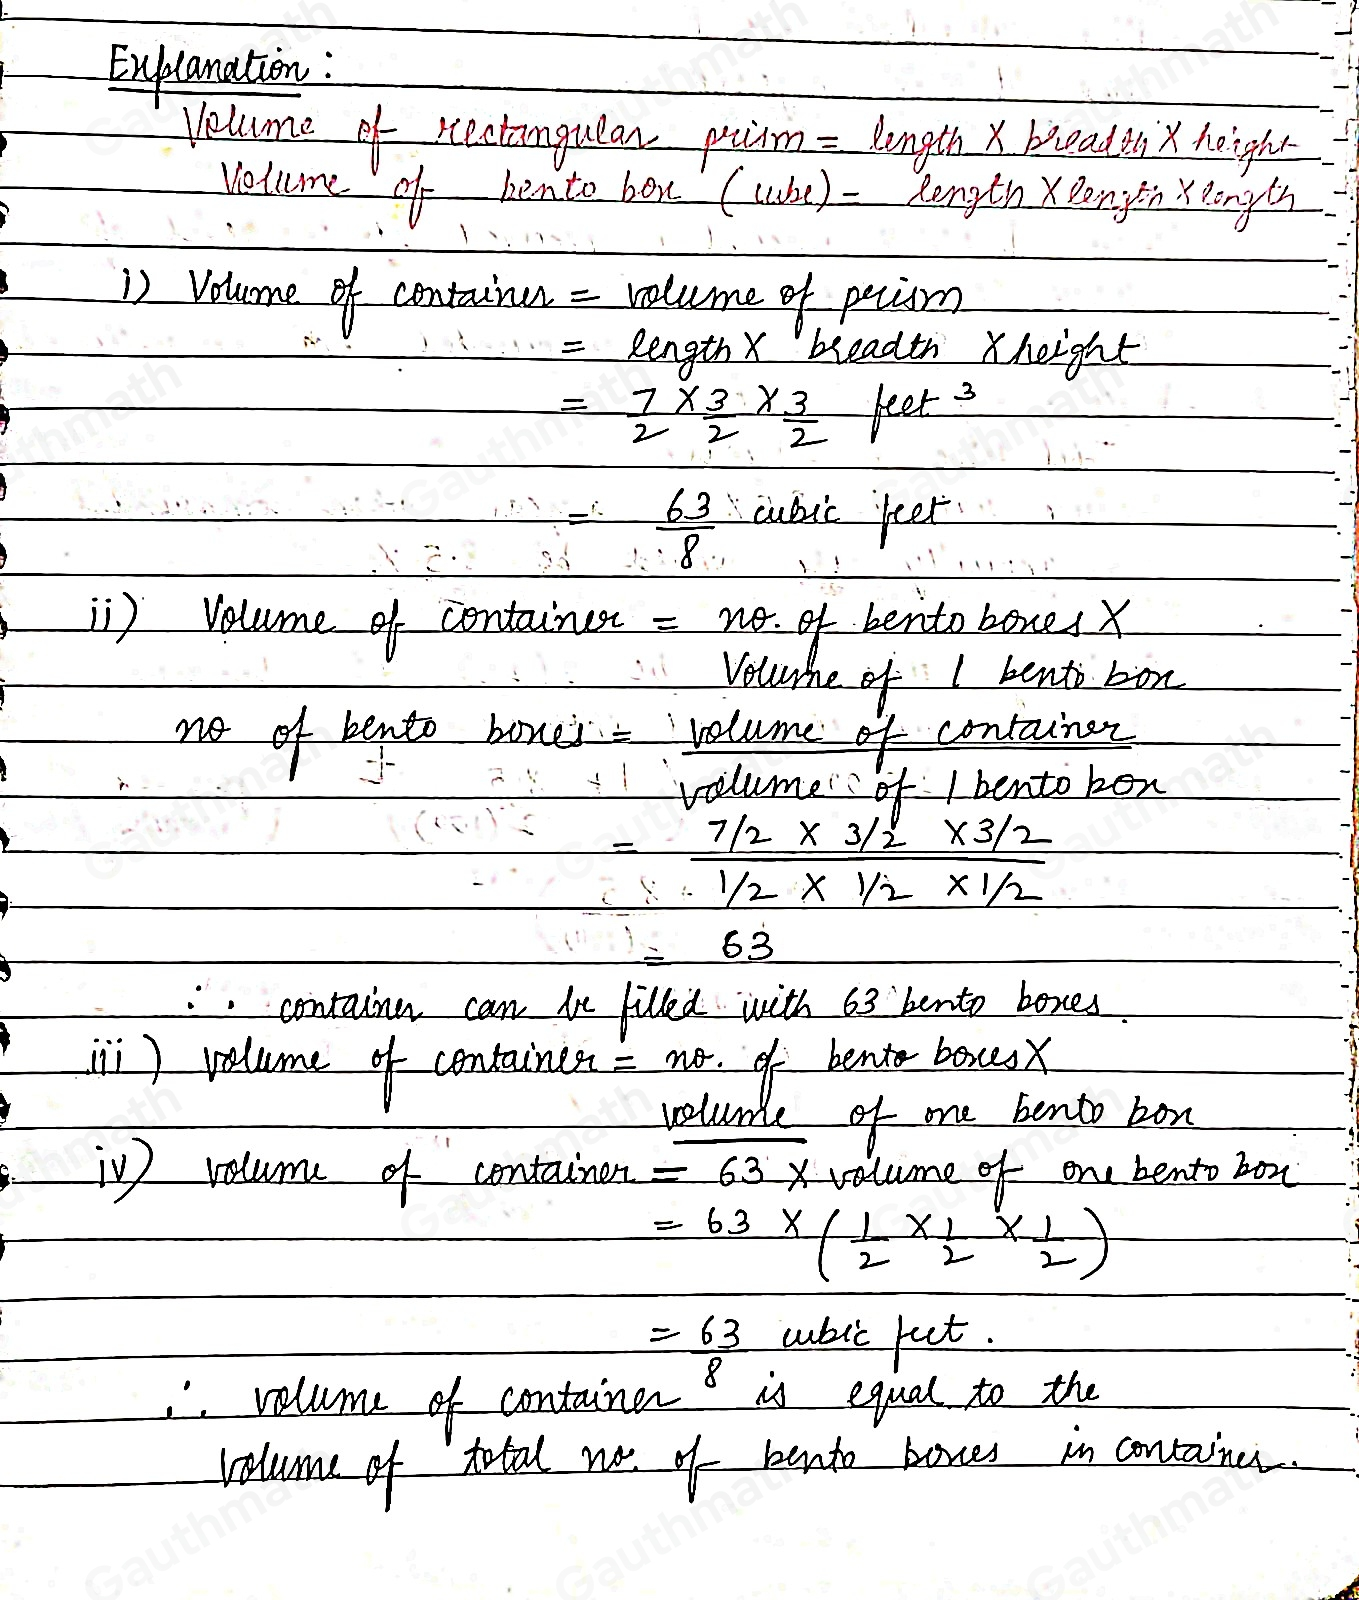 Explanation :
Volume of rectangular prism = length X breadth X height
Volume of bento box (cube) = length X length X length
i) Volume of container = volume of prism
= length X breadth X height
= 7/2 X 3/2 X 3/2 feet ³
= 63/8 cubic feet
ii) Volume of container = no. of bento boxes X
Volume of 1 bento box
no of bento boxes = volume of container
volume of 1 bento box
= 7/2 X 3/2 X 3/2
1/2 X 1/2 X 1/2
= 63
∴ container can be filled with 63 bento boxes.
iii) volume of container = no. of bento boxes X
volume of one bento box
iv) volume of container = 63 X volume of one bento box
= 63 X (1/2 X 1/2 X 1/2)
= 63/8 cubic feet.
∴ volume of container is equal to the
volume of total no. of bento boxes in container.